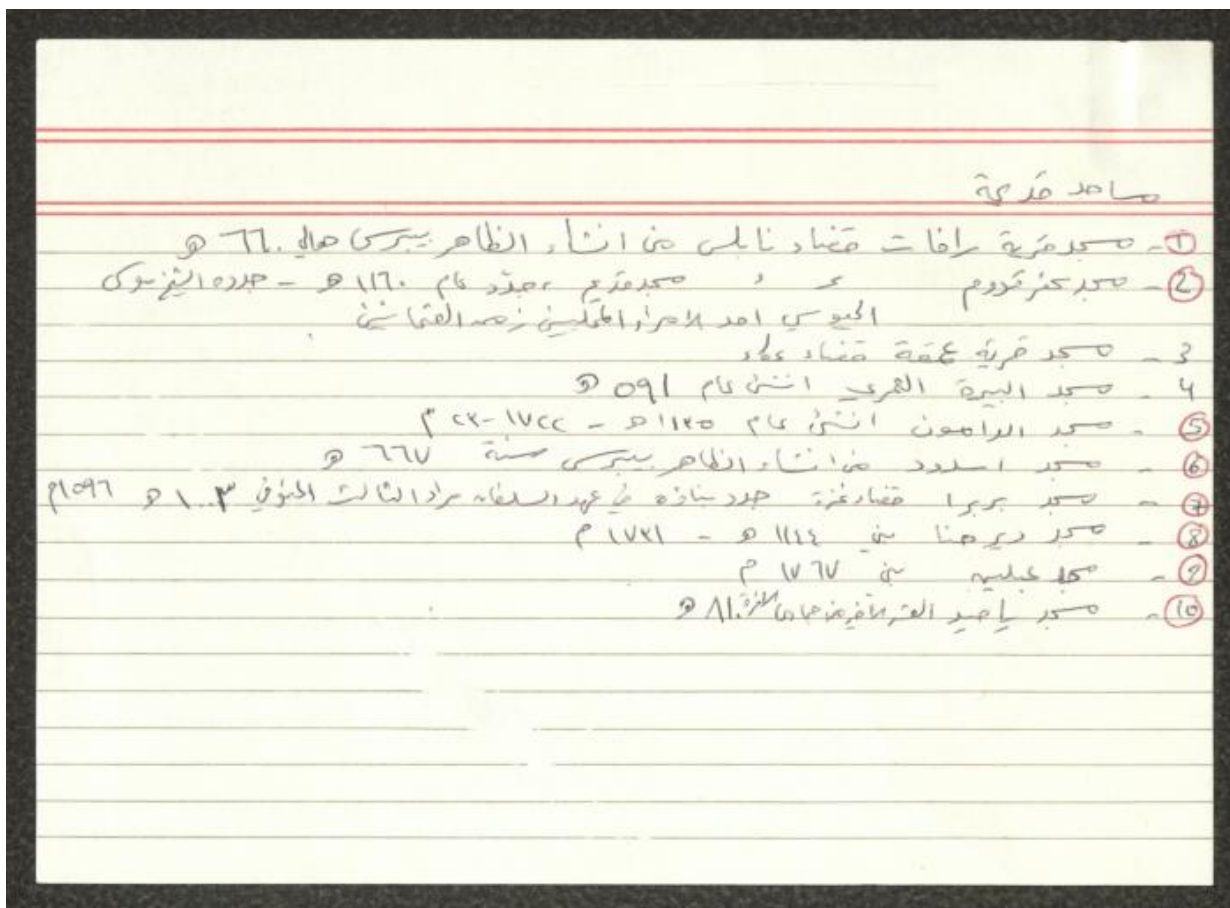 مساجد قديمة
1- مسجد قرية رافات قضاء نابلس من انشاء الظاهر بيبرس حوالي ٦٦٠ هـ
2- مسجد كفر قدوم " " مسجد قديم، جدّد عام ١١٦٠ هـ - جدده الشيخ موسى
الجيوسي احد الامراء المحليين زمن العثمانيين
3- مسجد قرية عمقة قضاء عكا
4- مسجد البيرة العمري انشئ عام ٥٩١ هـ
5- مسجد الدامون انشئ عام ١١٣٥ هـ - ١٧٢٢-٢٣ م
6- مسجد اسدود من انشاء الظاهر بيبرس سنة ٦٦٧ هـ
7- مسجد بربرا قضاء غزة جدد بناؤه في عهد السلطان مراد الثالث المتوفي ١٠٠٣ هـ ١٥٩٦م
8- مسجد دير حنا بني ١١٤٤ هـ - ١٧٣١ م
9- مسجد عبلين بني ١٧٦٧ م
10- مسجد ياصيد العشر الأخير من جمادى الآخرة ٨١٠ هـ